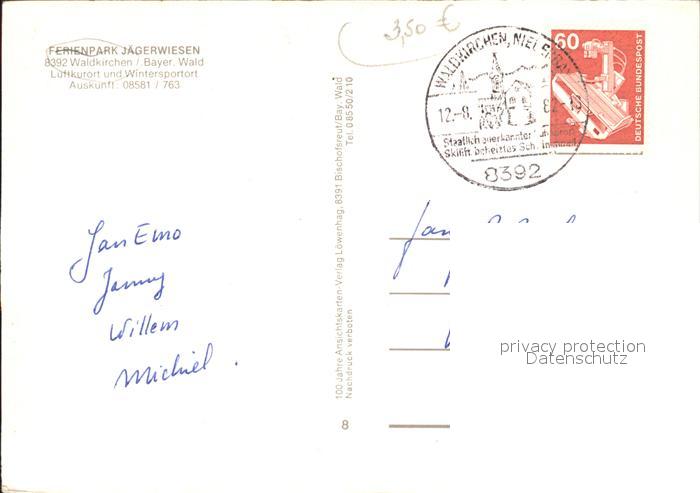 FERIENPARK JÄGERWIESEN
8392 Waldkirchen / Bayer. Wald
Luftkurort und Wintersportort
Auskunft: 08581 / 763
3,50 €
WALDKIRCHEN,
12.-8. 82-18
Staatlich anerkannter
Skilift, beheiztes
8392
60
DEUTSCHE BUNDESPOST
100 Jahre Ansichtskarten-Verlag Löwenhag, 8391 Bischofsreut/Bay. Wald
Nachdruck verboten
Tel. 08550/210
Jan Emo
Janny
Willem
Michiel.
Jan
privacy protection
Datenschutz
8